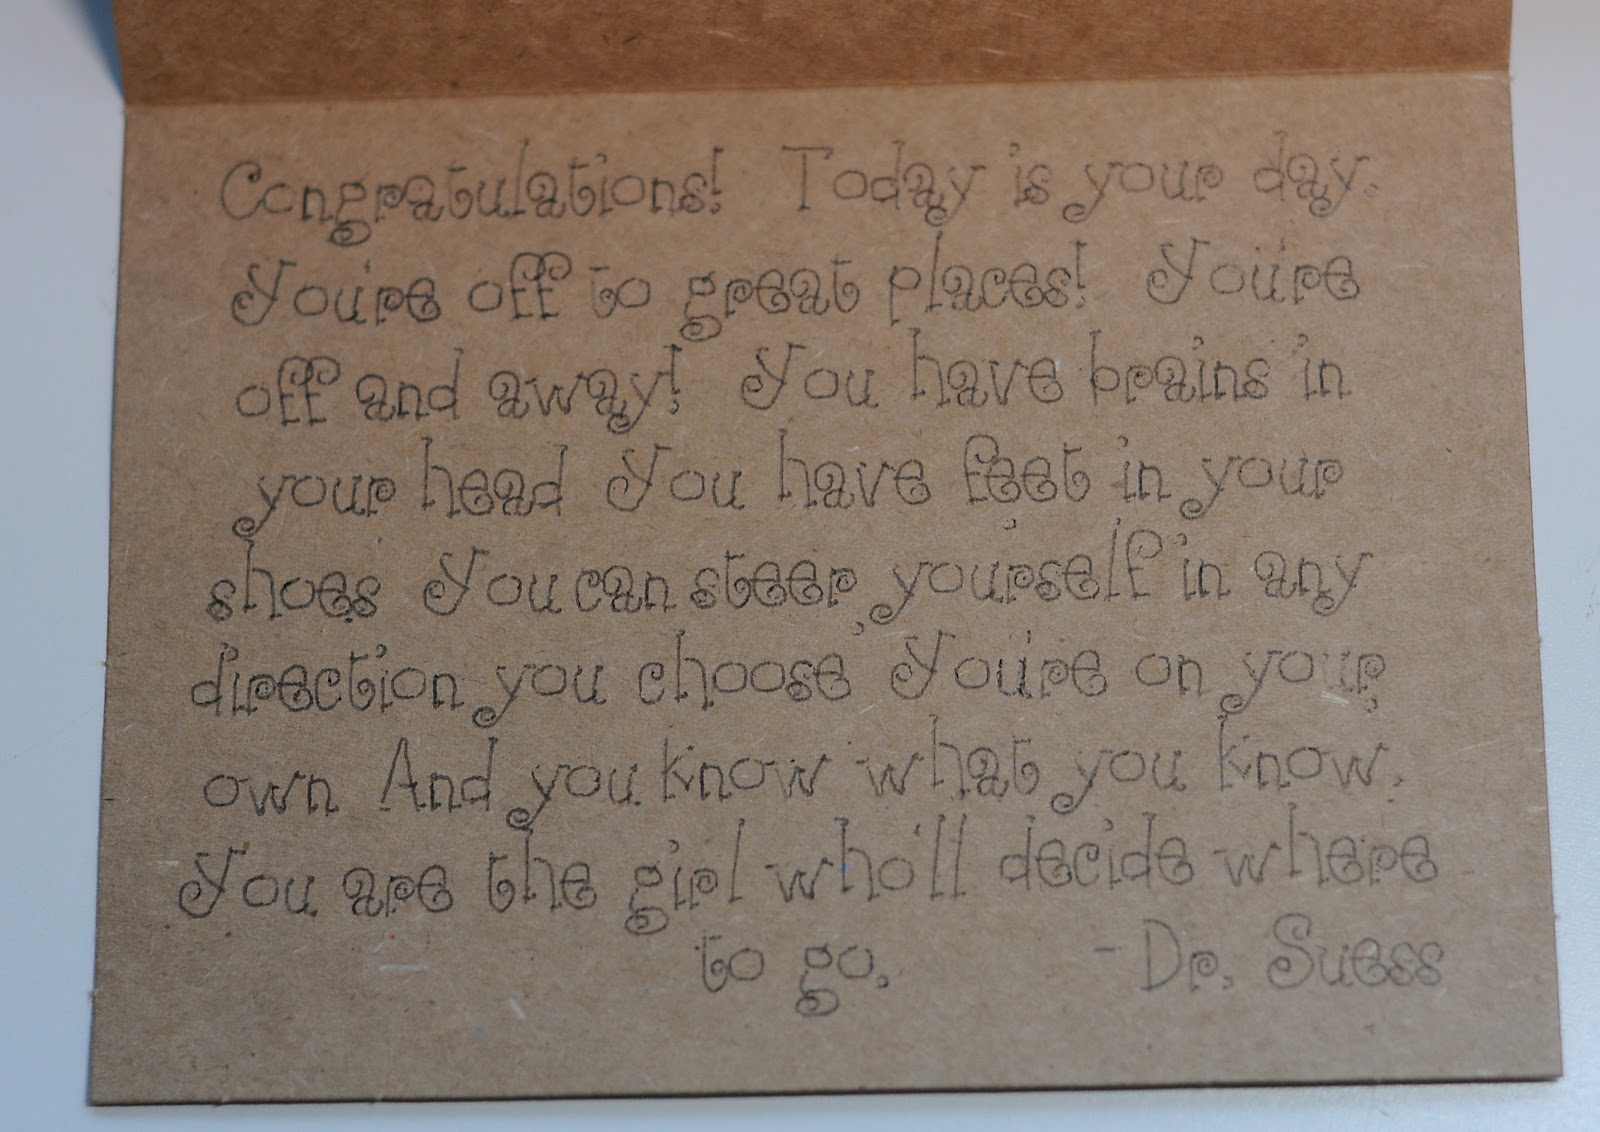 Congratulations! Today is your day.
You're off to great places! You're
off and away! You have brains in
your head You have feet in your
shoes You can steer yourself in any
direction you choose You're on your
own And you know what you know.
You are the girl who'll decide where
to go. - Dr. Suess